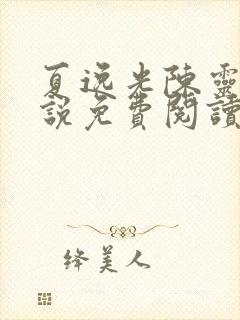 夏逸光陳靈
說免費閱讀
绛美人